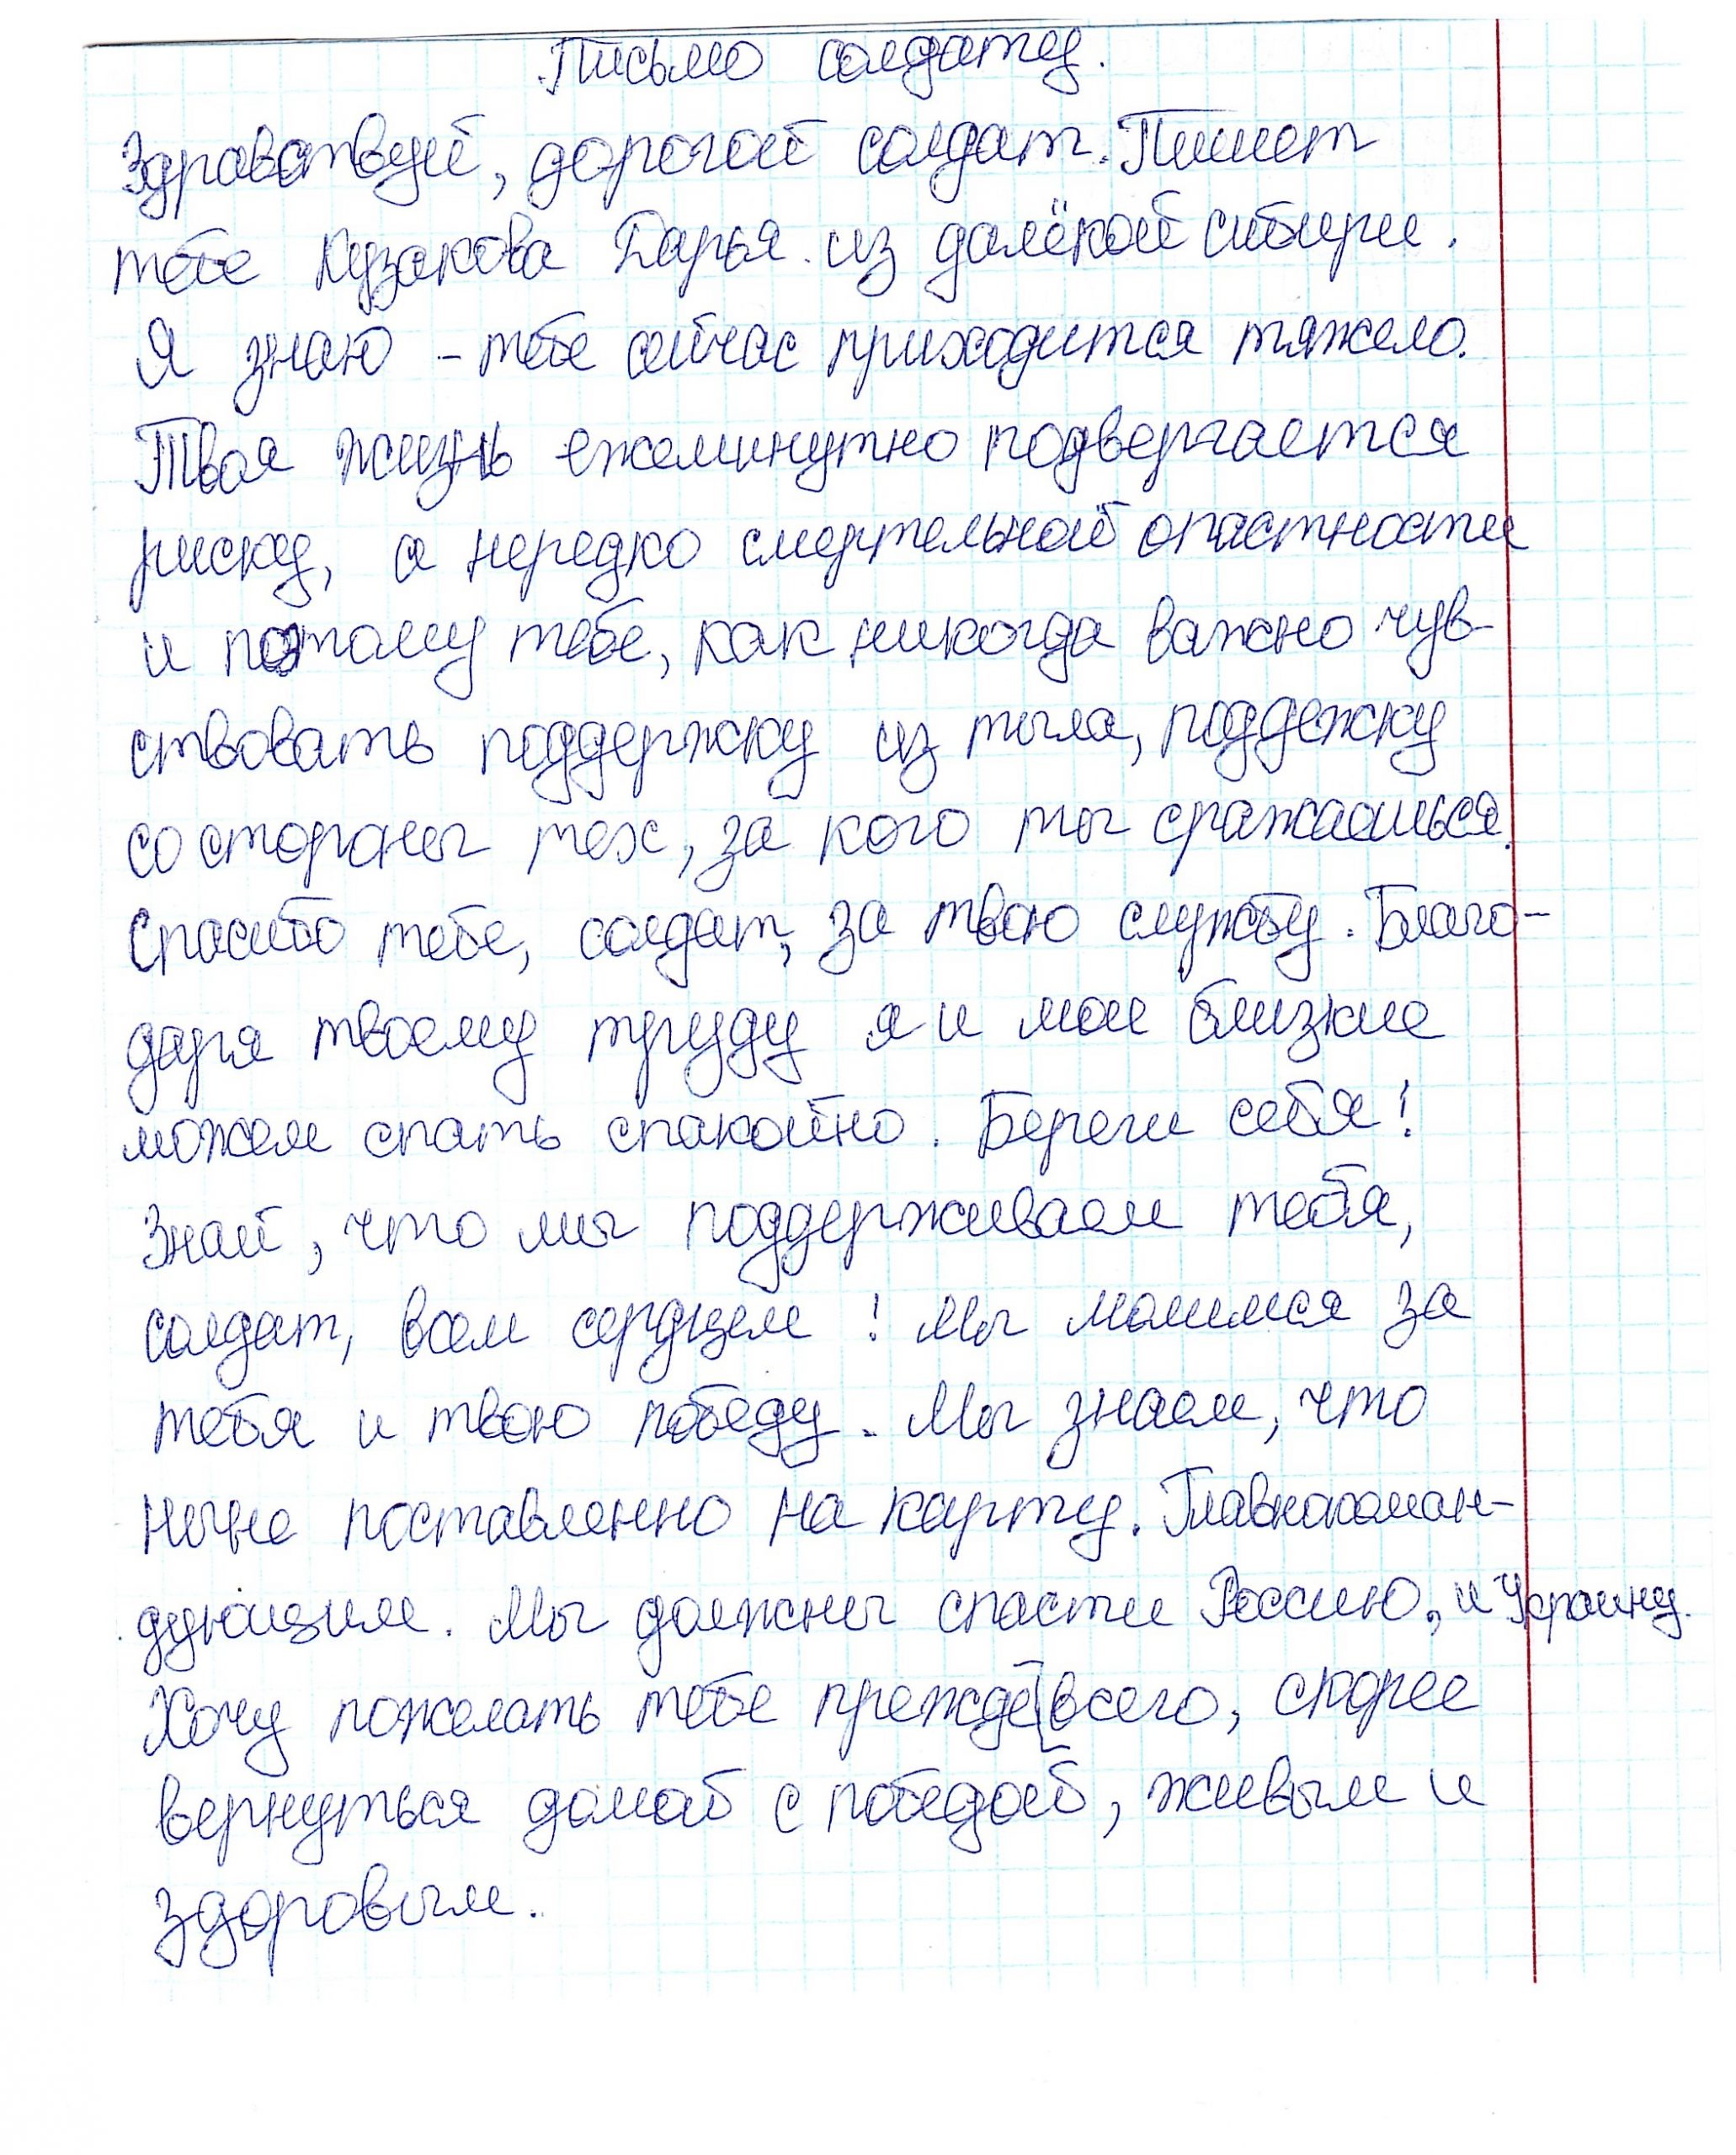 Письмо солдату.
Здравствуй, дорогой солдат. Пишет
тебе Кузакова Дарья из далёкой сибири.
Я знаю - тебе сейчас приходится тяжело.
Твоя жизнь ежеминутно подвергается
риску, а нередко смертельной опастности
и поэтому тебе, как никогда важно чув-
ствовать поддержку из тыла, поддежку
со стороны тех, за кого ты сражаешься.
Спасибо тебе, солдат, за твою службу. Благо-
даря твоему труду я и мои близкие
можем спать спокойно. Береги себя!
Знай, что мы поддерживаем тебя,
солдат, всем сердцем! Мы молимся за
тебя и твою победу. Мы знаем, что
ныне поставленно на карту. Главнокоман-
дующим. Мы должны спасти Россию, и Украину.
Хочу пожелать тебе прежде всего, скорее
вернуться домой с победой, живым и
здоровым.